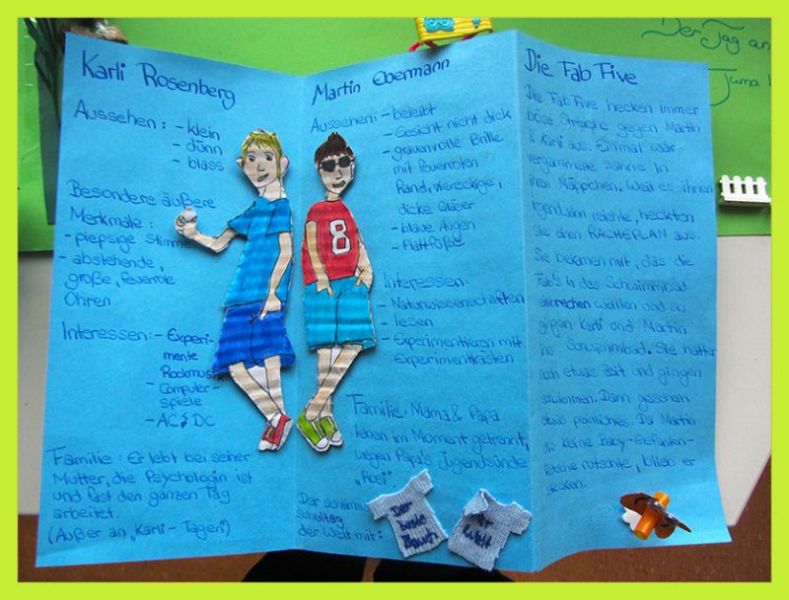 Karli Rosenberg
Aussehen: - klein
- dünn
- blass
Besondere äußere
Merkmale:
- piepsige Stimme
- abstehende,
große, feuerrote
Ohren
Interessen: - Experi-
mente
Rockmusik
- Computer-
spiele
- AC⚡DC
Familie: Er lebt bei seiner
Mutter, die Psychologin ist
und fast den ganzen Tag
arbeitet.
(Außer an "Karli-Tagen")
Martin Ebermann
Aussehen: - beleibt
- Gesicht nicht dick
- grauenvolle Brille
mit feuerroten
Rand, viereckige,
dicke Gläser
- blaue Augen
- Plattfüße
8
Interessen:
- Naturwissenschaften
- lesen
- Experimentieren mit
Experimentkästen
Familie: Mama & Papa
leben im Moment getrennt,
wegen Papa's Jugendsünde
"Poei"
Der schlimmste
Schultag
der Welt mit:
Der
beste
Bauch
der
Welt
Die Fab Five
Die Fab Five hecken immer
böse Streiche gegen Martin
& Karli aus. Einmal war
vergammelte Sahne in
ihren Mäppchen. Weil es ihnen
irgendwann reichte, heckten
Sie einen RACHEPLAN aus.
Sie bekamen mit, das die
Fab's in das Schwimmbad
einbrechen wollten und so
gingen Karli und Martin
ins Schwimmbad. Sie hatten
noch etwas Zeit und gingen
schwimmen. Dann geschah
etwas peinliches. Da Martin
die kleine Baby-Elefanten-
rutsche rutschte, blieb er
stecken.
Der Tag an
Juma